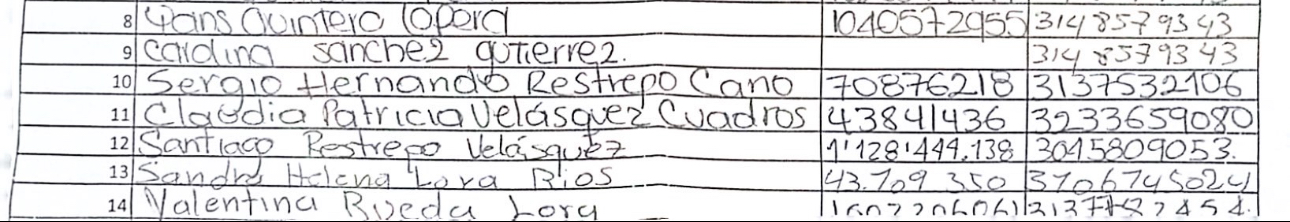 8 Quintero Lopera 1040572955 314 857 93 43
9 Carolina sanchez gutierrez. 314 857 93 43
10 Sergio Hernando Restrepo Cano 70876218 3137532106
11 Claudia Patricia Velásquez Cuadros 43841436 3233659080
12 Santiago Restrepo Velásquez 1'128'444,138 3015809053.
13 Sandra Helena Lora Rios 43.709 350
14 Valentina Rueda Lora